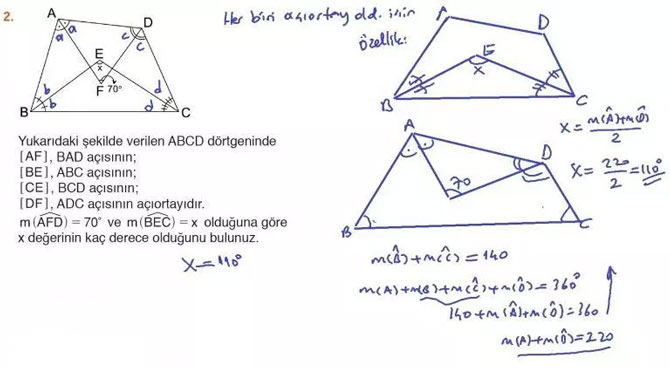 2.
A
D
a
a
c
c
E
x
F
70°
b
b
d
d
B
C
Yukarıdaki şekilde verilen ABCD dörtgeninde
[AF], BAD açısının;
[BE], ABC açısının;
[CE], BCD açısının;
[DF], ADC açısının açıortayıdır.
m(AFD) = 70° ve m(BEC) = x olduğuna göre
x değerinin kaç derece olduğunu bulunuz.
x = 110°
Her biri açıortay old. için
özellik:
A
D
E
x
B
C
x = m(Â)+m(D̂)
2
x = 220/2 = 110°
A
D
70
B
C
m(B̂)+m(Ĉ) = 140
m(A)+m(B)+m(Ĉ)+m(D̂) = 360°
140+m(Â)+m(D̂) = 360
m(A)+m(D̂) = 220